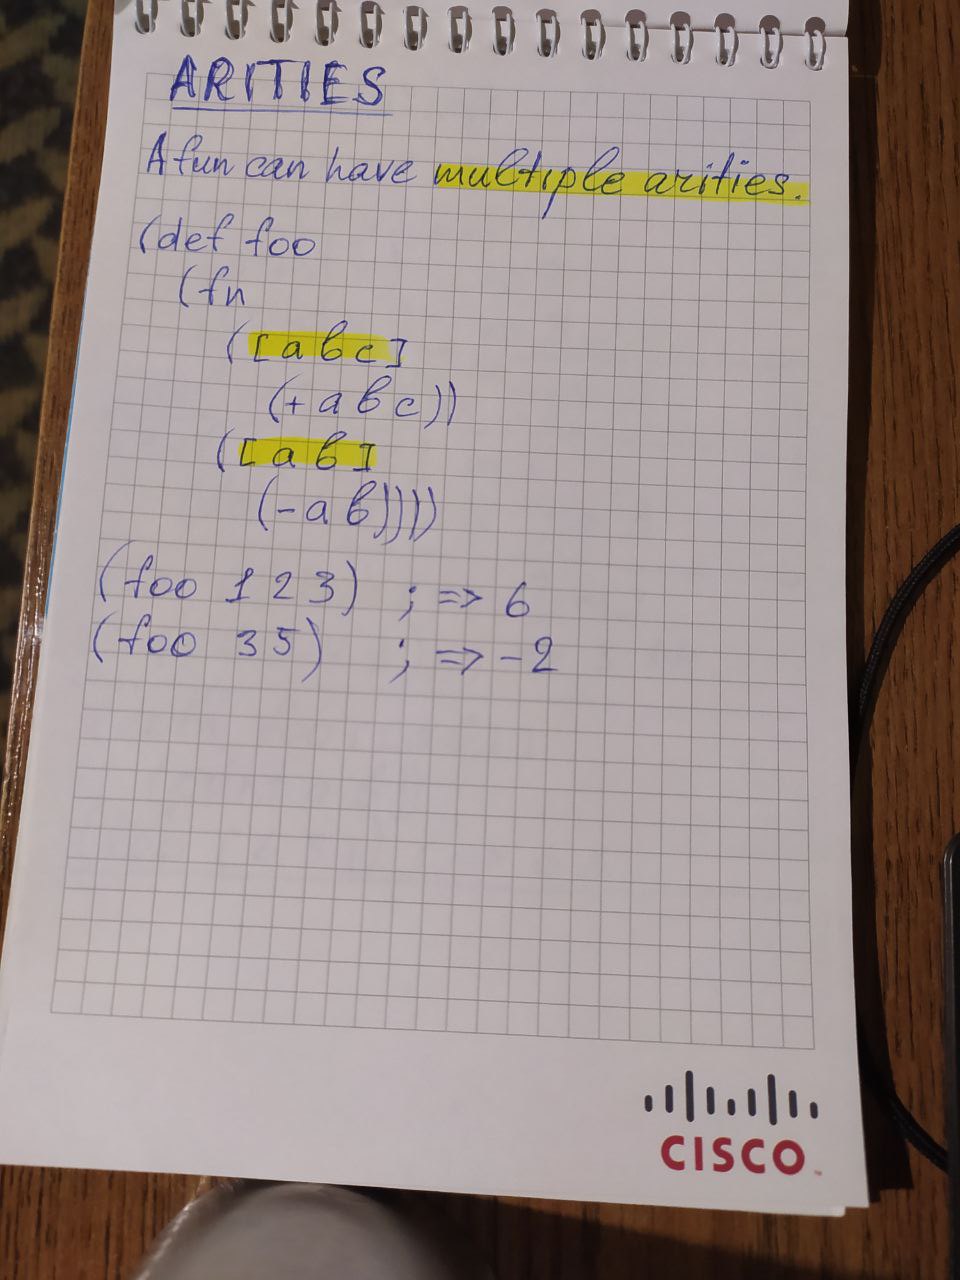 ARITIES
A fun can have multiple arities.
(def foo
(fn
([a b c]
(+ a b c))
([a b]
(- a b))))
(foo 1 2 3) ; => 6
(foo 3 5) ; => -2
CISCO